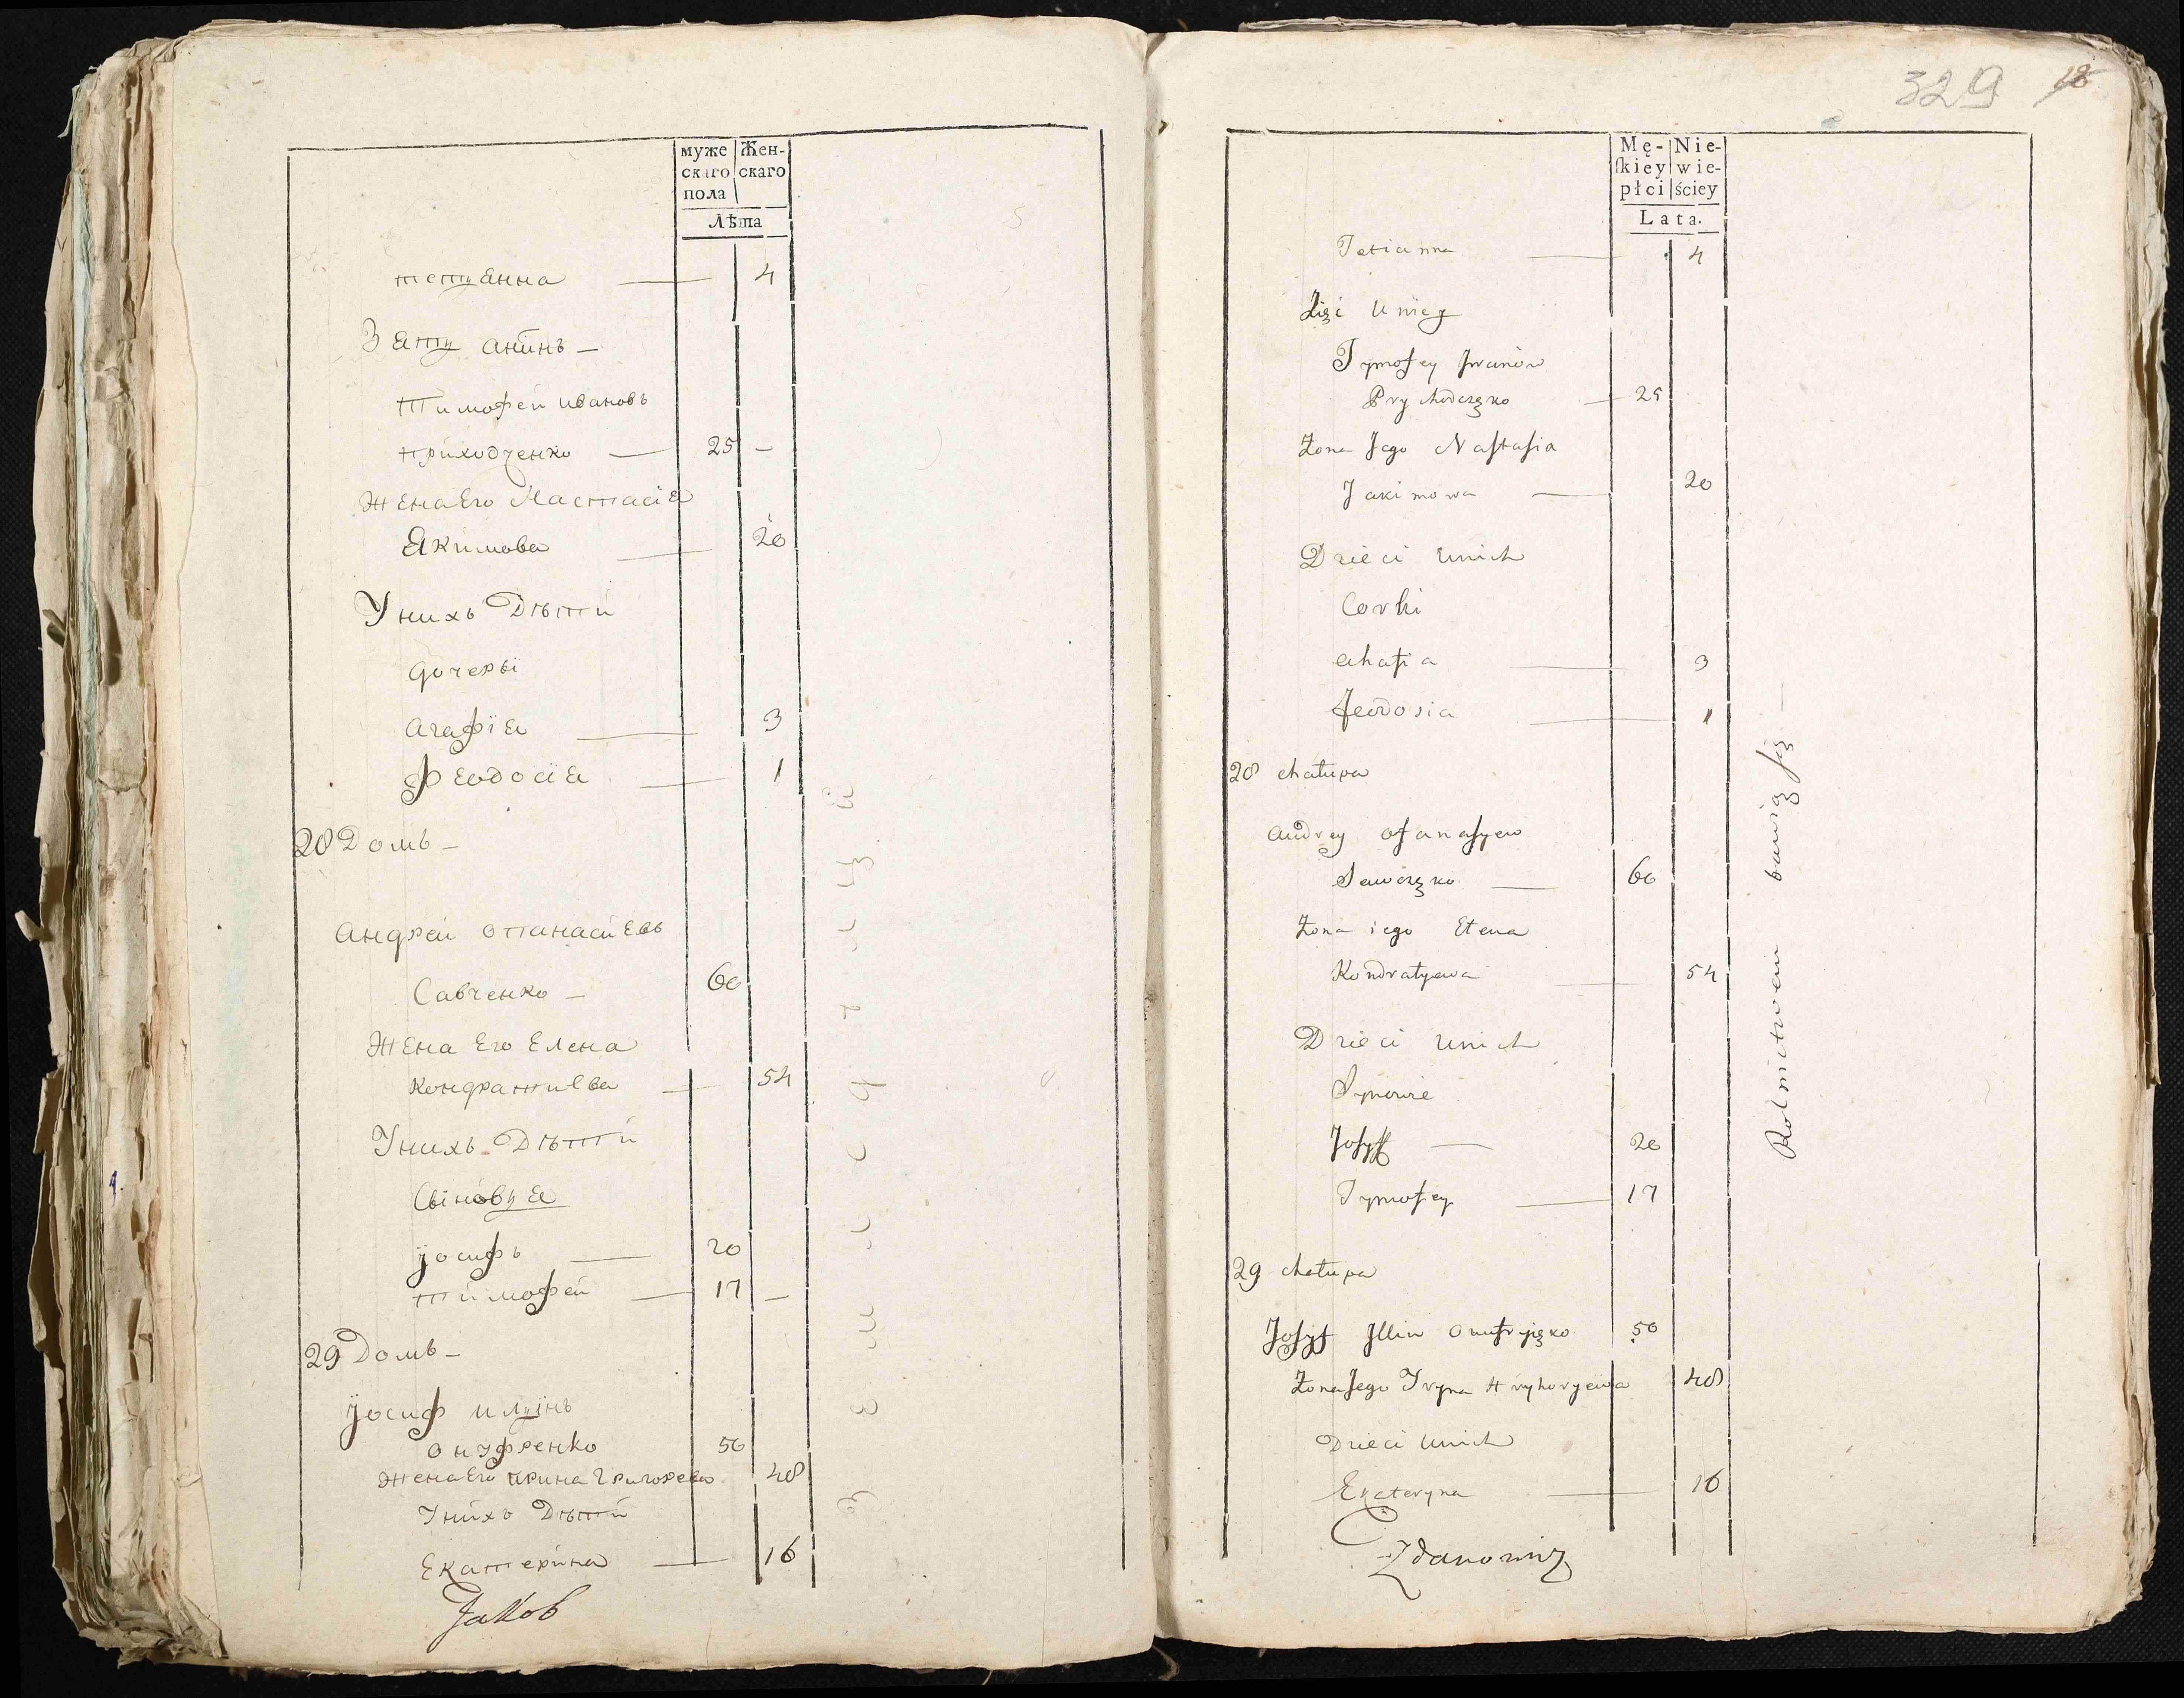 муже Жен-
скаго скаго
пола
Лѣта
тетянна — 4
Зяти анинъ —
Тимофеи ивановъ
приходченко — 25 —
жена Его Настасія
Якимова — 20
У нихъ Дѣти
дочеры
агафія — 3
феодосія — 1
28 Домъ —
андреи опанасиевъ
Савченко — 60
жена Его Елена
кондратиева — 54
У нихъ Дѣти
Синовия
йосифъ — 20
тимофеи — 17 —
29 Домъ —
йосиф илиинъ
онуфренко 50
жена Его ирина григорева 48
У нихъ Дѣти
Екатерина — 16
Jakob
329 18
Mę- Nie-
ſkiey wie-
płci ściey
Lata.
Tetianna — 4
Zięć u niey
Tymofey Jwanów
Prychodczęko — 25
Żona Jego Nastasia
Jakimowa — 20
Dzieci unich
Corki
ahafia — 3
feodosia — 1
28 chałupa
andrey ofanasyew
Sawczęko — 60
Żona iego Elena
Kondratyewa — 54
Dzieci unich
Synowie
Josyff — 20
Tymofey — 17
29 chałupa
Josyf Jllin onufryięko 50
Żona Jego Iryna Hryhoryewa 48
Dzieci unich
Ekateryna — 16
Zdanowicz
Rolnictwem bawią się —